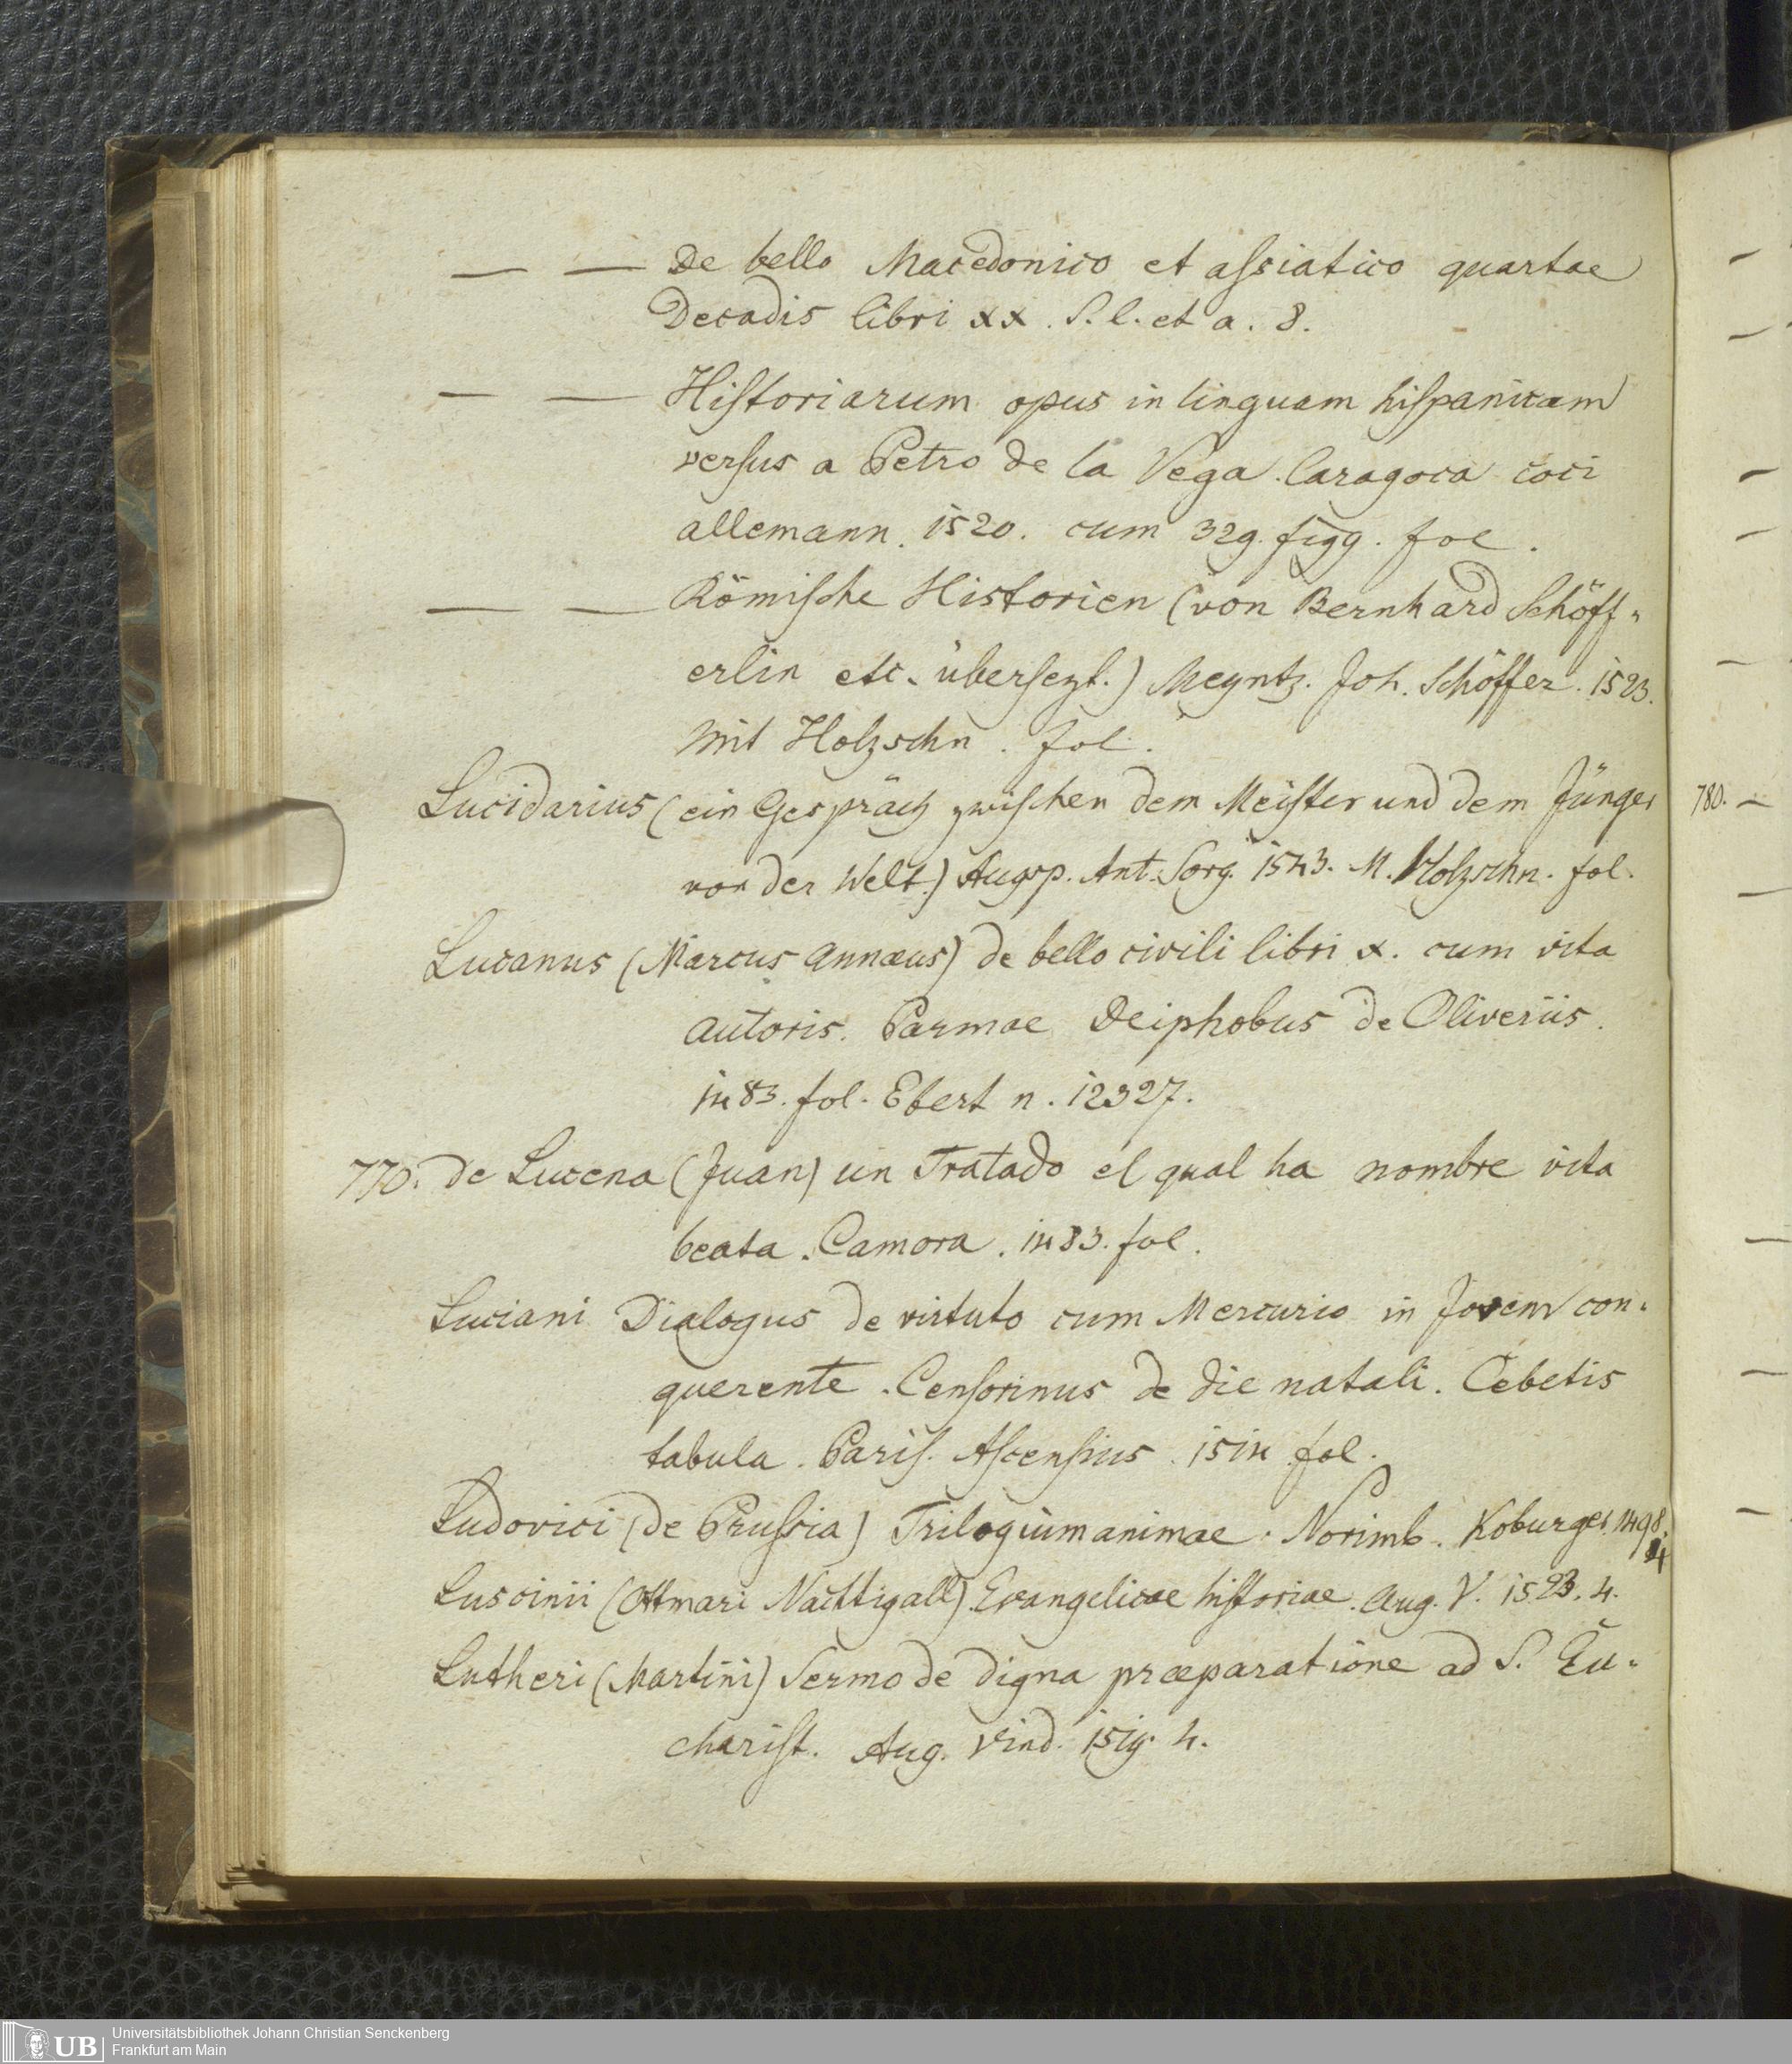 — — De bello Macedonico et assiatico quartae
Decadis libri XX. S. l. et a. 8.
— — Historiarum opus in linguam hispanicam
versus a Petro de la Vega. Caragoca coci
allemann. 1520. cum 329. figg. fol.
— — Römische Historien (von Bernhard Schöff-
erlin etc. übersezt.) Meyntz. Joh. Schöffer. 1523.
mit Holzschn. fol.
Lucidarius (ein Gespräch zwischen dem Meister und dem Jünger
von der Welt.) Augsp. Ant. Sorg. 1543. M. Holzschn. fol.
Lucanus (Marcus Annæus) de bello civili libri X. cum vita
autoris. Parmae Deiphobus de Oliveriis.
1483. fol. Ebert n. 12327.
770. de Lucena (Juan) un Tratado el qual ha nombre vita
beata. Camora. 1483. fol.
Luciani Dialogus de virtuto cum Mercurio in Jovem con-
querente. Censorinus de die natali. Cebetis
tabula. Paris. Ascensius. 1514 fol.
Ludovici (de Prussia) Trilogium animae. Norimb. Koburger 1498.
4
Luscinii (Ottmari Nachtigall) Evangelicae historiae. Aug. V. 1523. 4.
Lutheri (Martini) Sermo de digna præparatione ad S. Eu-
charist. Aug. Vind. 1519. 4.
780. —
UB
Universitätsbibliothek Johann Christian Senckenberg
Frankfurt am Main